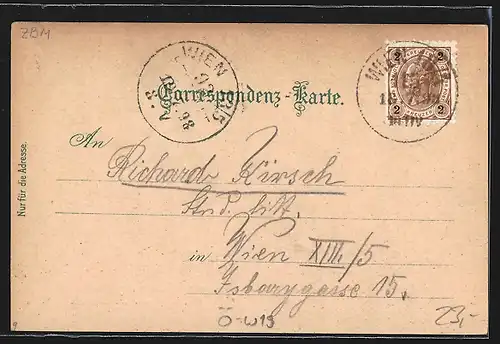 ZBM
WIEN
Correspondenz-Karte.
2 2
2 2
An
Richard Kirsch
Stud. litt.
in Wien XIII/5
Isbarygasse 15.
Nur für die Adresse.
Ö-W13
23,-